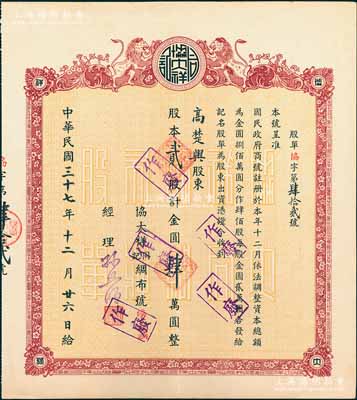 股單協字第肆拾貳號
本號呈准
國民政府商號註冊於本年十二月依法調整資本總額
為金圓捌佰萬圓分作肆佰股每股金圓貳萬圓
記名股單為股東出資憑證
高楚輿股東
股本貳股計金圓肆萬圓整
協大祥綢布號
經理
中華民國三十七年十二月廿六日給
作廢
作廢
作廢
作廢
作廢